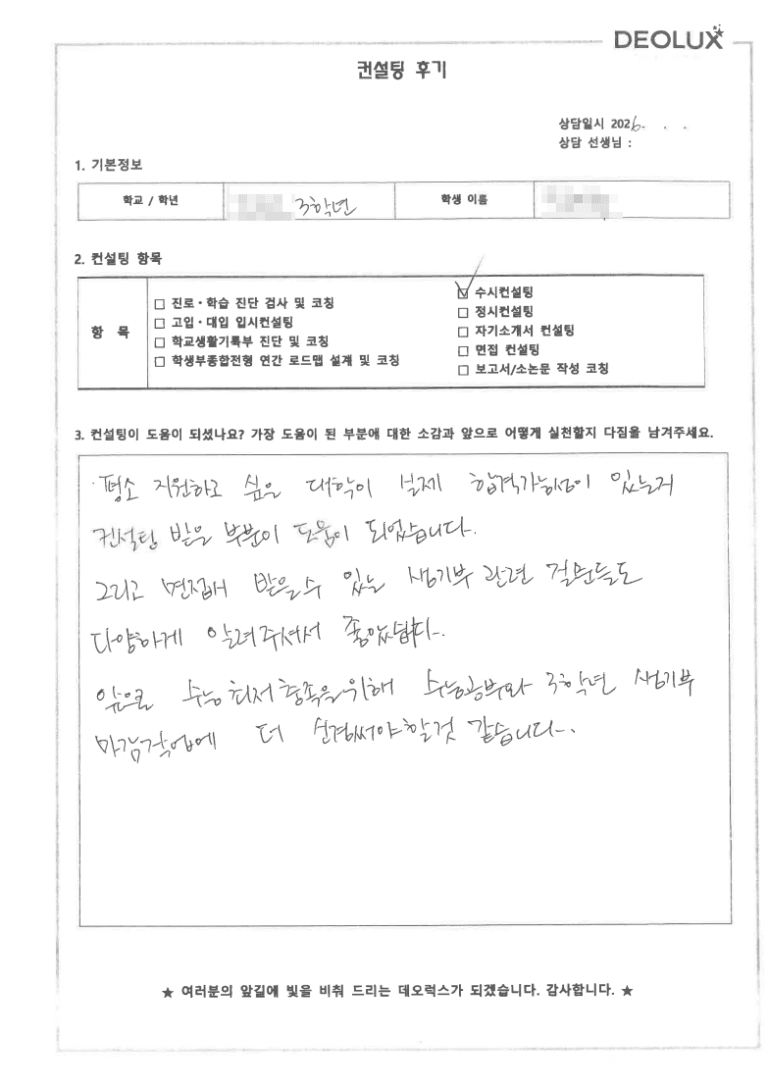 DEOLUX
컨설팅 후기
상담일시 2026. . .
상담 선생님 :
1. 기본정보
학교 / 학년 3학년 학생 이름
2. 컨설팅 항목
항 목
□ 진로·학습 진단 검사 및 코칭
□ 고입·대입 입시컨설팅
□ 학교생활기록부 진단 및 코칭
□ 학생부종합전형 연간 로드맵 설계 및 코칭
☑ 수시컨설팅
□ 정시컨설팅
□ 자기소개서 컨설팅
□ 면접 컨설팅
□ 보고서/소논문 작성 코칭
3. 컨설팅이 도움이 되셨나요? 가장 도움이 된 부분에 대한 소감과 앞으로 어떻게 실천할지 다짐을 남겨주세요.
평소 지원하고 싶은 대학이 실제 합격가능성이 있는지
컨설팅 받은 부분이 도움이 되었습니다.
그리고 면접에서 받을 수 있는 생기부 관련 질문들도
다양하게 알려주셔서 좋았습니다.
앞으로 수능 최저 충족을 위해 수능공부와 3학년 생기부
마감작업에 더 신경써야 할 것 같습니다.
★ 여러분의 앞길에 빛을 비춰 드리는 데오럭스가 되겠습니다. 감사합니다. ★